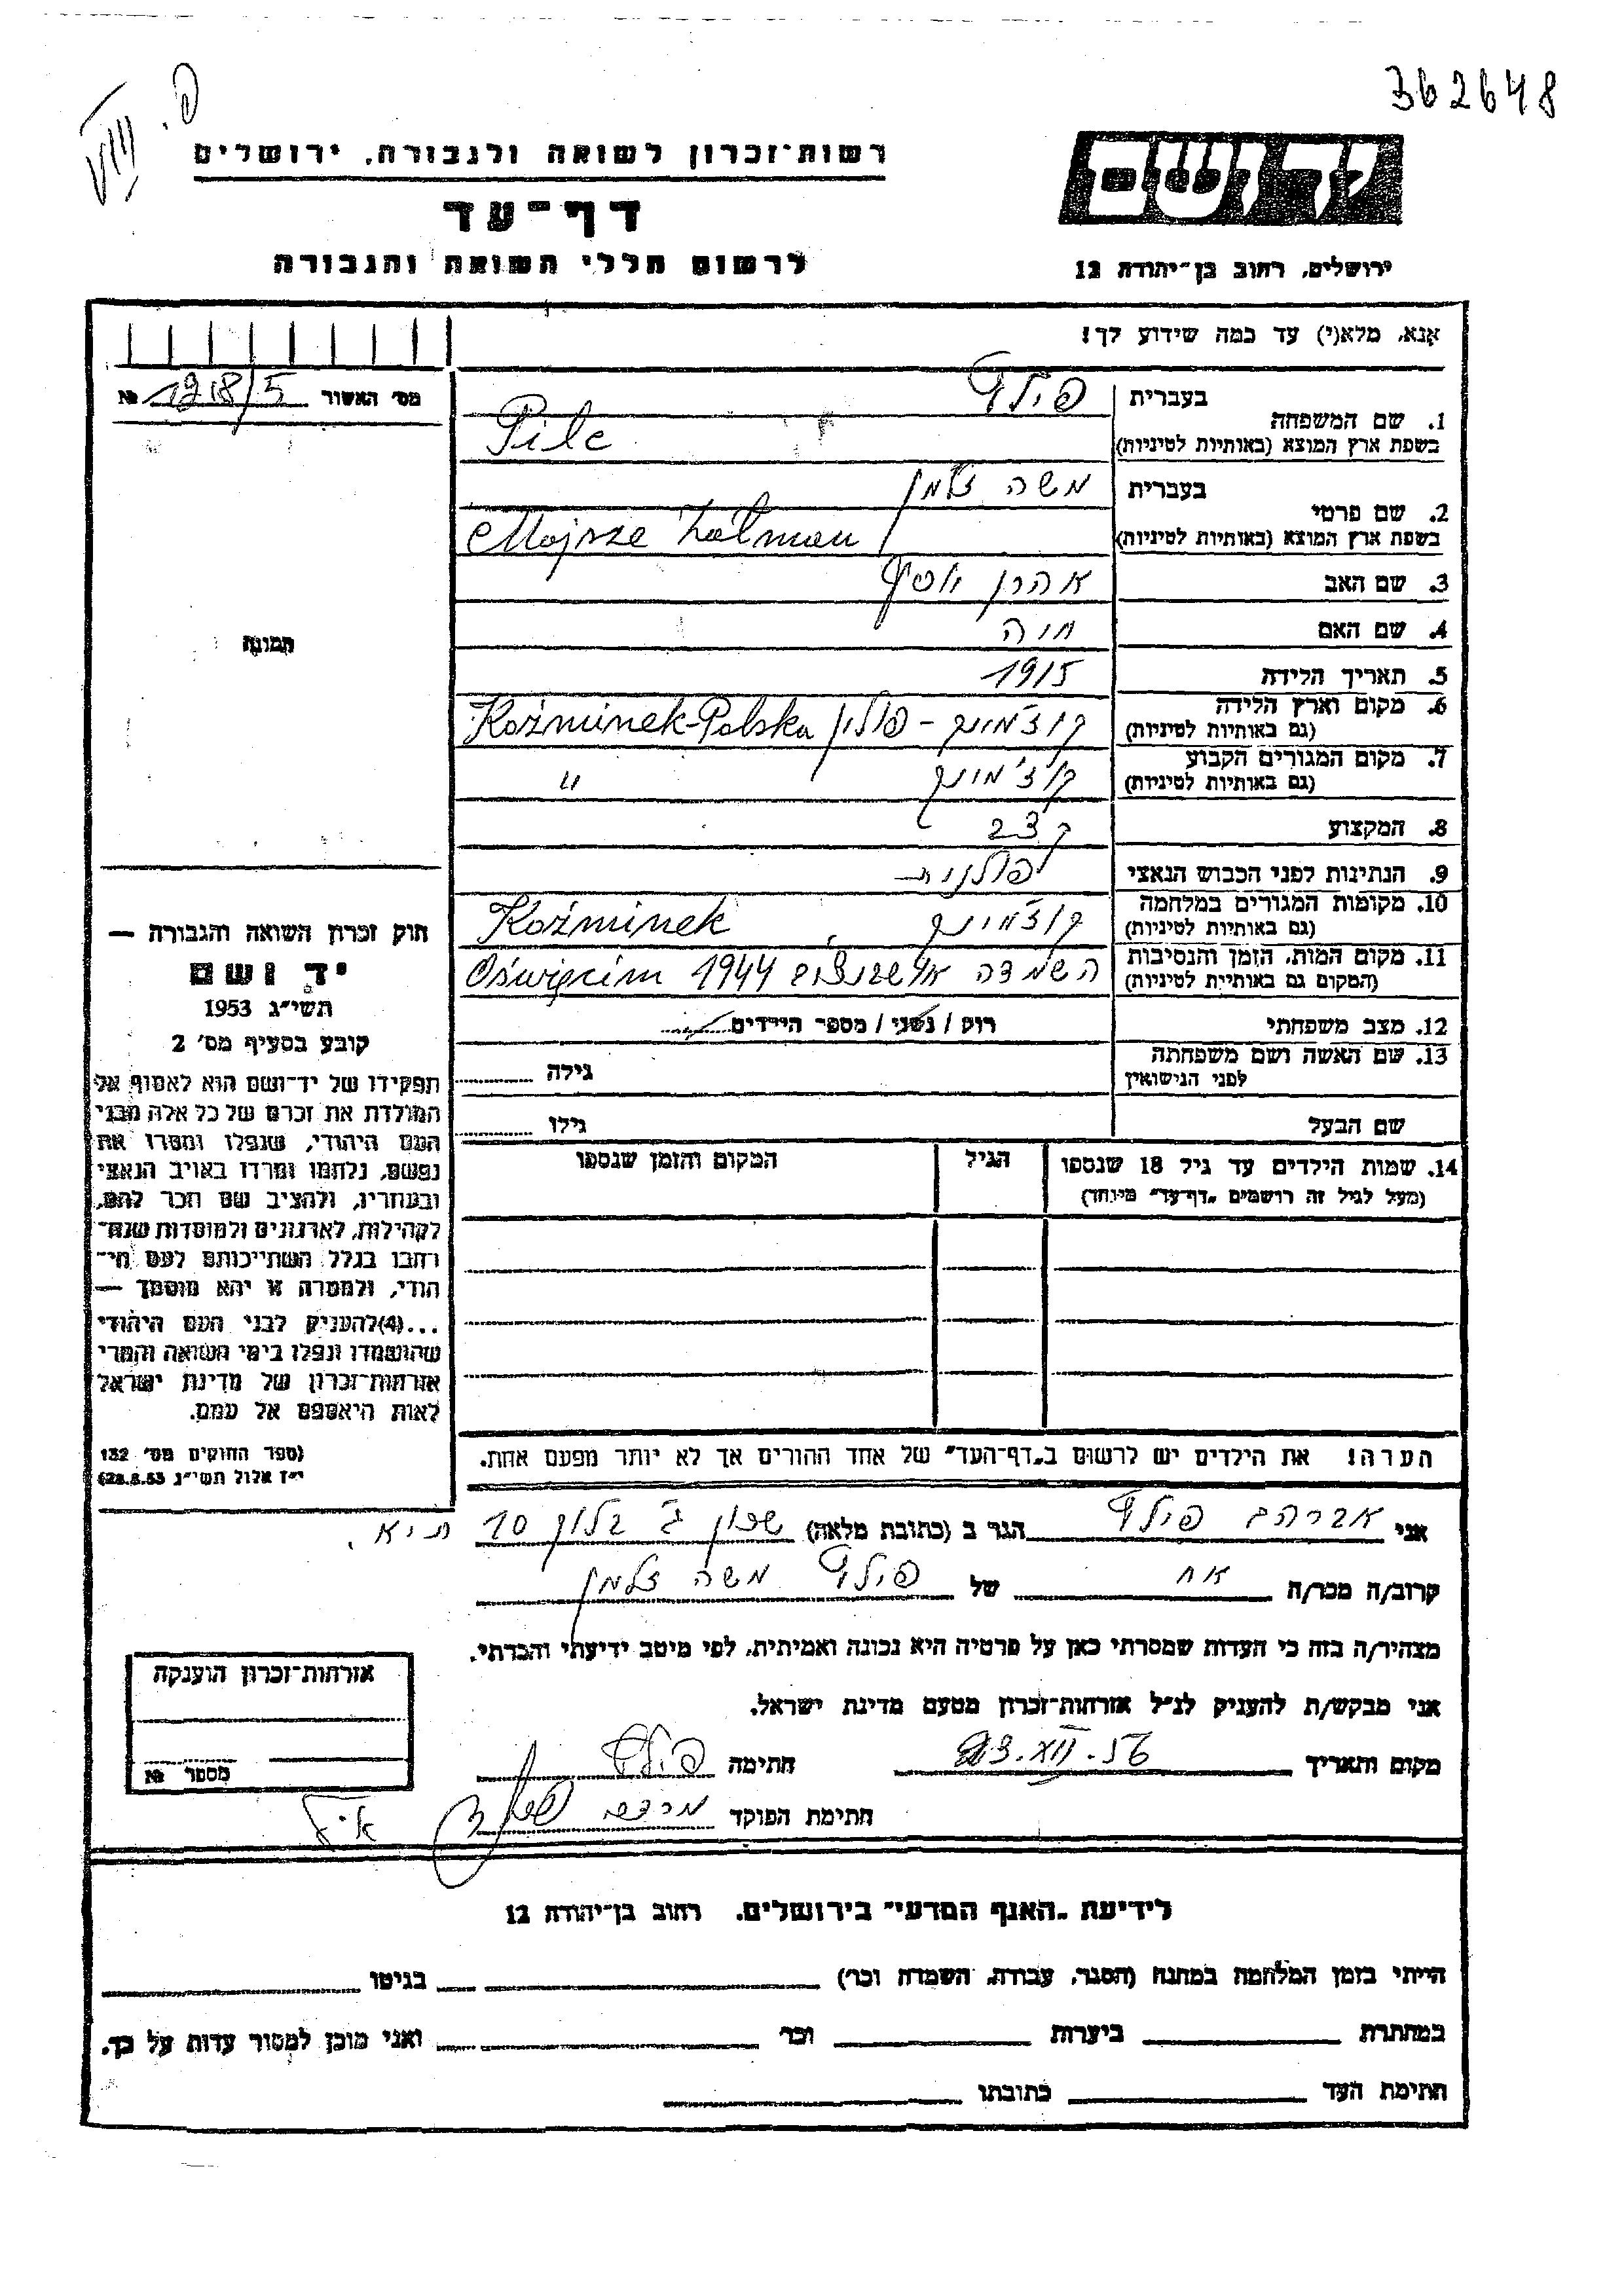 362648
VIII פ.
יד ושם
רשות־זכרון לשואה ולגבורה, ירושלים
דף־עד
לרשום חללי השואה והגבורה
ירושלים, רחוב בן־יהודה 12
אנא, מלא(י) עד כמה שידוע לך!
מס׳ האשור № 1218/5
1. שם המשפחה בעברית פילץ
בשפת ארץ המוצא (באותיות לטיניות) Pilc
2. שם פרטי בעברית משה זלמן
בשפת ארץ המוצא (באותיות לטיניות) Mojsze Zalman
3. שם האב אהרן יוסף
4. שם האם חיה
5. תאריך הלידה 1915
6. מקום וארץ הלידה (גם באותיות לטיניות) קוז׳מינק - פולין Koźminek-Polska
7. מקום המגורים הקבוע (גם באותיות לטיניות) קוז׳מינק "
8. המקצוע קצב
9. הנתינות לפני הכבוש הנאצי פולנית
10. מקומות המגורים במלחמה (גם באותיות לטיניות) קוז׳מינק Koźminek
11. מקום המות, הזמן והנסיבות (המקום גם באותיות לטיניות) השמדה אושבנצים 1944 Oświęcim
12. מצב משפחתי רוק / נשוי / מספר הילדים
13. שם האשה ושם משפחתה לפני הנישואין גילה
שם הבעל גילו
14. שמות הילדים עד גיל 18 שנספו הגיל המקום והזמן שנספו
(מעל לגיל זה רושמים „דף־עד״ מיוחד)
הערה! את הילדים יש לרשום ב„דף־העד״ של אחד ההורים אך לא יותר מפעם אחת.
תמונה
חוק זכרון השואה והגבורה —
יד ושם
תשי״ג 1953
קובע בסעיף מס׳ 2
תפקידו של יד־ושם הוא לאסוף אל
המולדת את זכרם של כל אלה מבני
העם היהודי, שנפלו ומסרו את
נפשם, נלחמו ומרדו באויב הנאצי
ובעוזריו, ולהציב שם וזכר להם,
לקהילות, לארגונים ולמוסדות שנח־
רבו בגלל השתייכותם לעם הי־
הודי, ולמטרה זו יהא מוסמך —
...(4)להעניק לבני העם היהודי
שהושמדו ונפלו בימי השואה והמרי
אזרחות־זכרון של מדינת ישראל
לאות היאספם אל עמם.
(ספר החוקים מס׳ 132
י״ז אלול תשי״ג 28.8.53)
אני אברהם פילץ הגר ב (כתובת מלאה) שכון ג׳ בלוק 10 ת״א.
קרוב/ה מכר/ה אח של פילץ משה זלמן
מצהיר/ה בזה כי העדות שמסרתי כאן על פרטיה היא נכונה ואמיתית, לפי מיטב ידיעתי והכרתי.
אני מבקש/ת להעניק לנ״ל אזרחות־זכרון מטעם מדינת ישראל.
מקום ותאריך 23.XII.56 חתימה פילץ
חתימת הפוקד מרדכי
אזרחות־זכרון הוענקה
מספר №
לידיעת „האגף המדעי״ בירושלים. רחוב בן־יהודה 12
הייתי בזמן המלחמה במחנה (הסגר, עבודה, השמדה וכו׳) בגיטו
במחתרת ביערות וכו׳ ואני מוכן למסור עדות על כך.
חתימת העד כתובתו